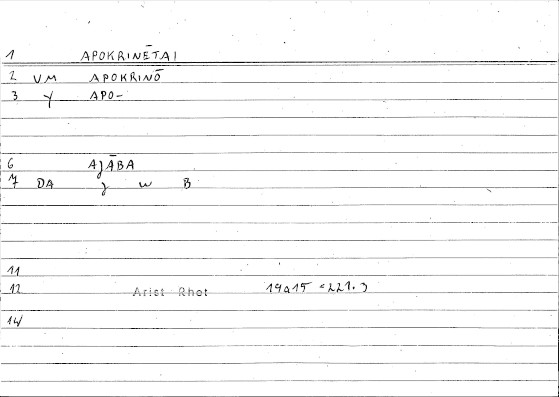 1 APOKRINĒTAI
2 VM APOKRINŌ
3 Y APO-
6 AJĀBA
7 DA J W B
11
12 Arist Rhet 19a15 =221.3
14